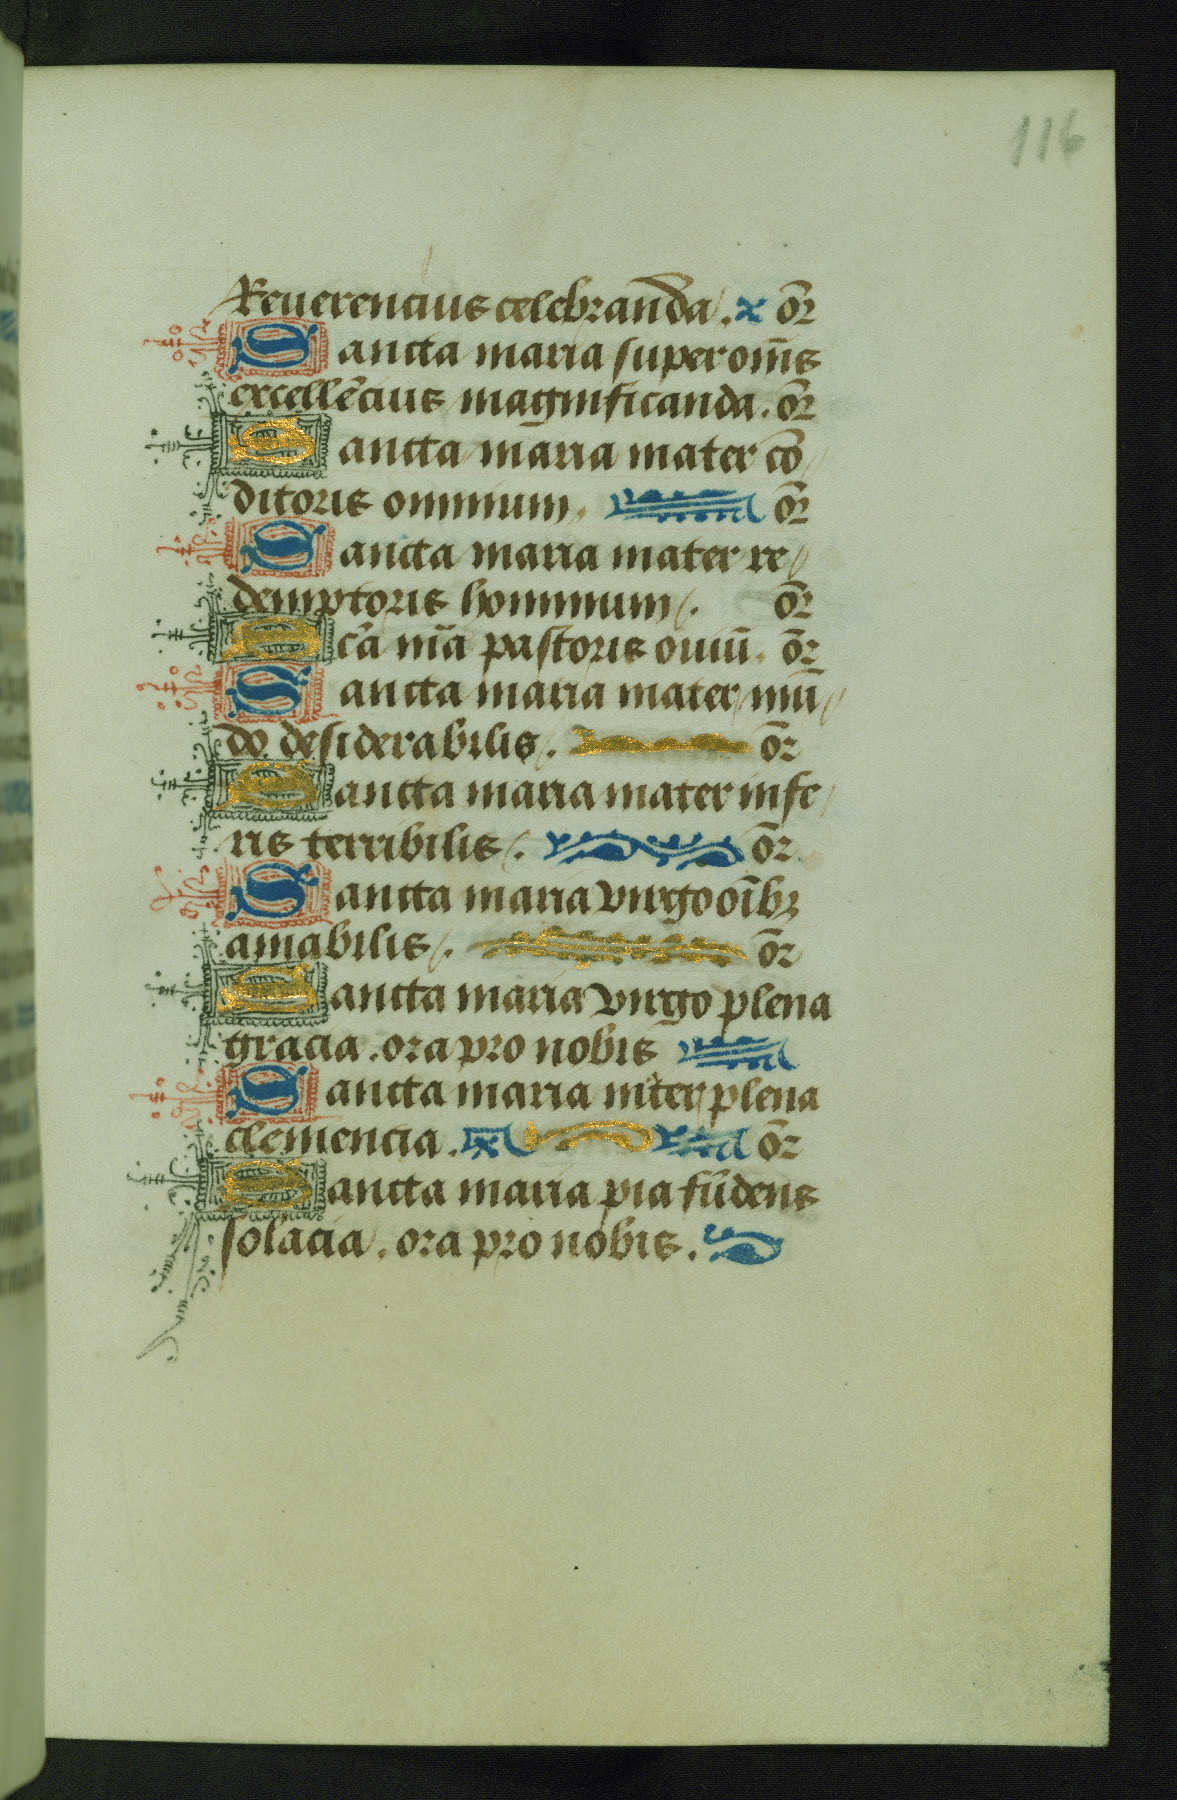 116
Reuerencius celebranda. or̄
Sancta maria super om̄s
excellēcius magnificanda. or̄
Sancta maria mater cō
ditoris omnium. or̄
Sancta maria mater re
demptoris hominum. or̄
Sc̄a mr̄a pastoris ouiū. or̄
Sancta maria mater mū
do desiderabilis. or̄
Sancta maria mater infe
ris terribilis. or̄
Sancta maria virgo oībꝫ
amabilis. or̄
Sancta maria virgo plena
gracia. ora pro nobis
Sancta maria mīter plena
clemencia. or̄
Sancta maria pia fūdens
solacia. ora pro nobis.